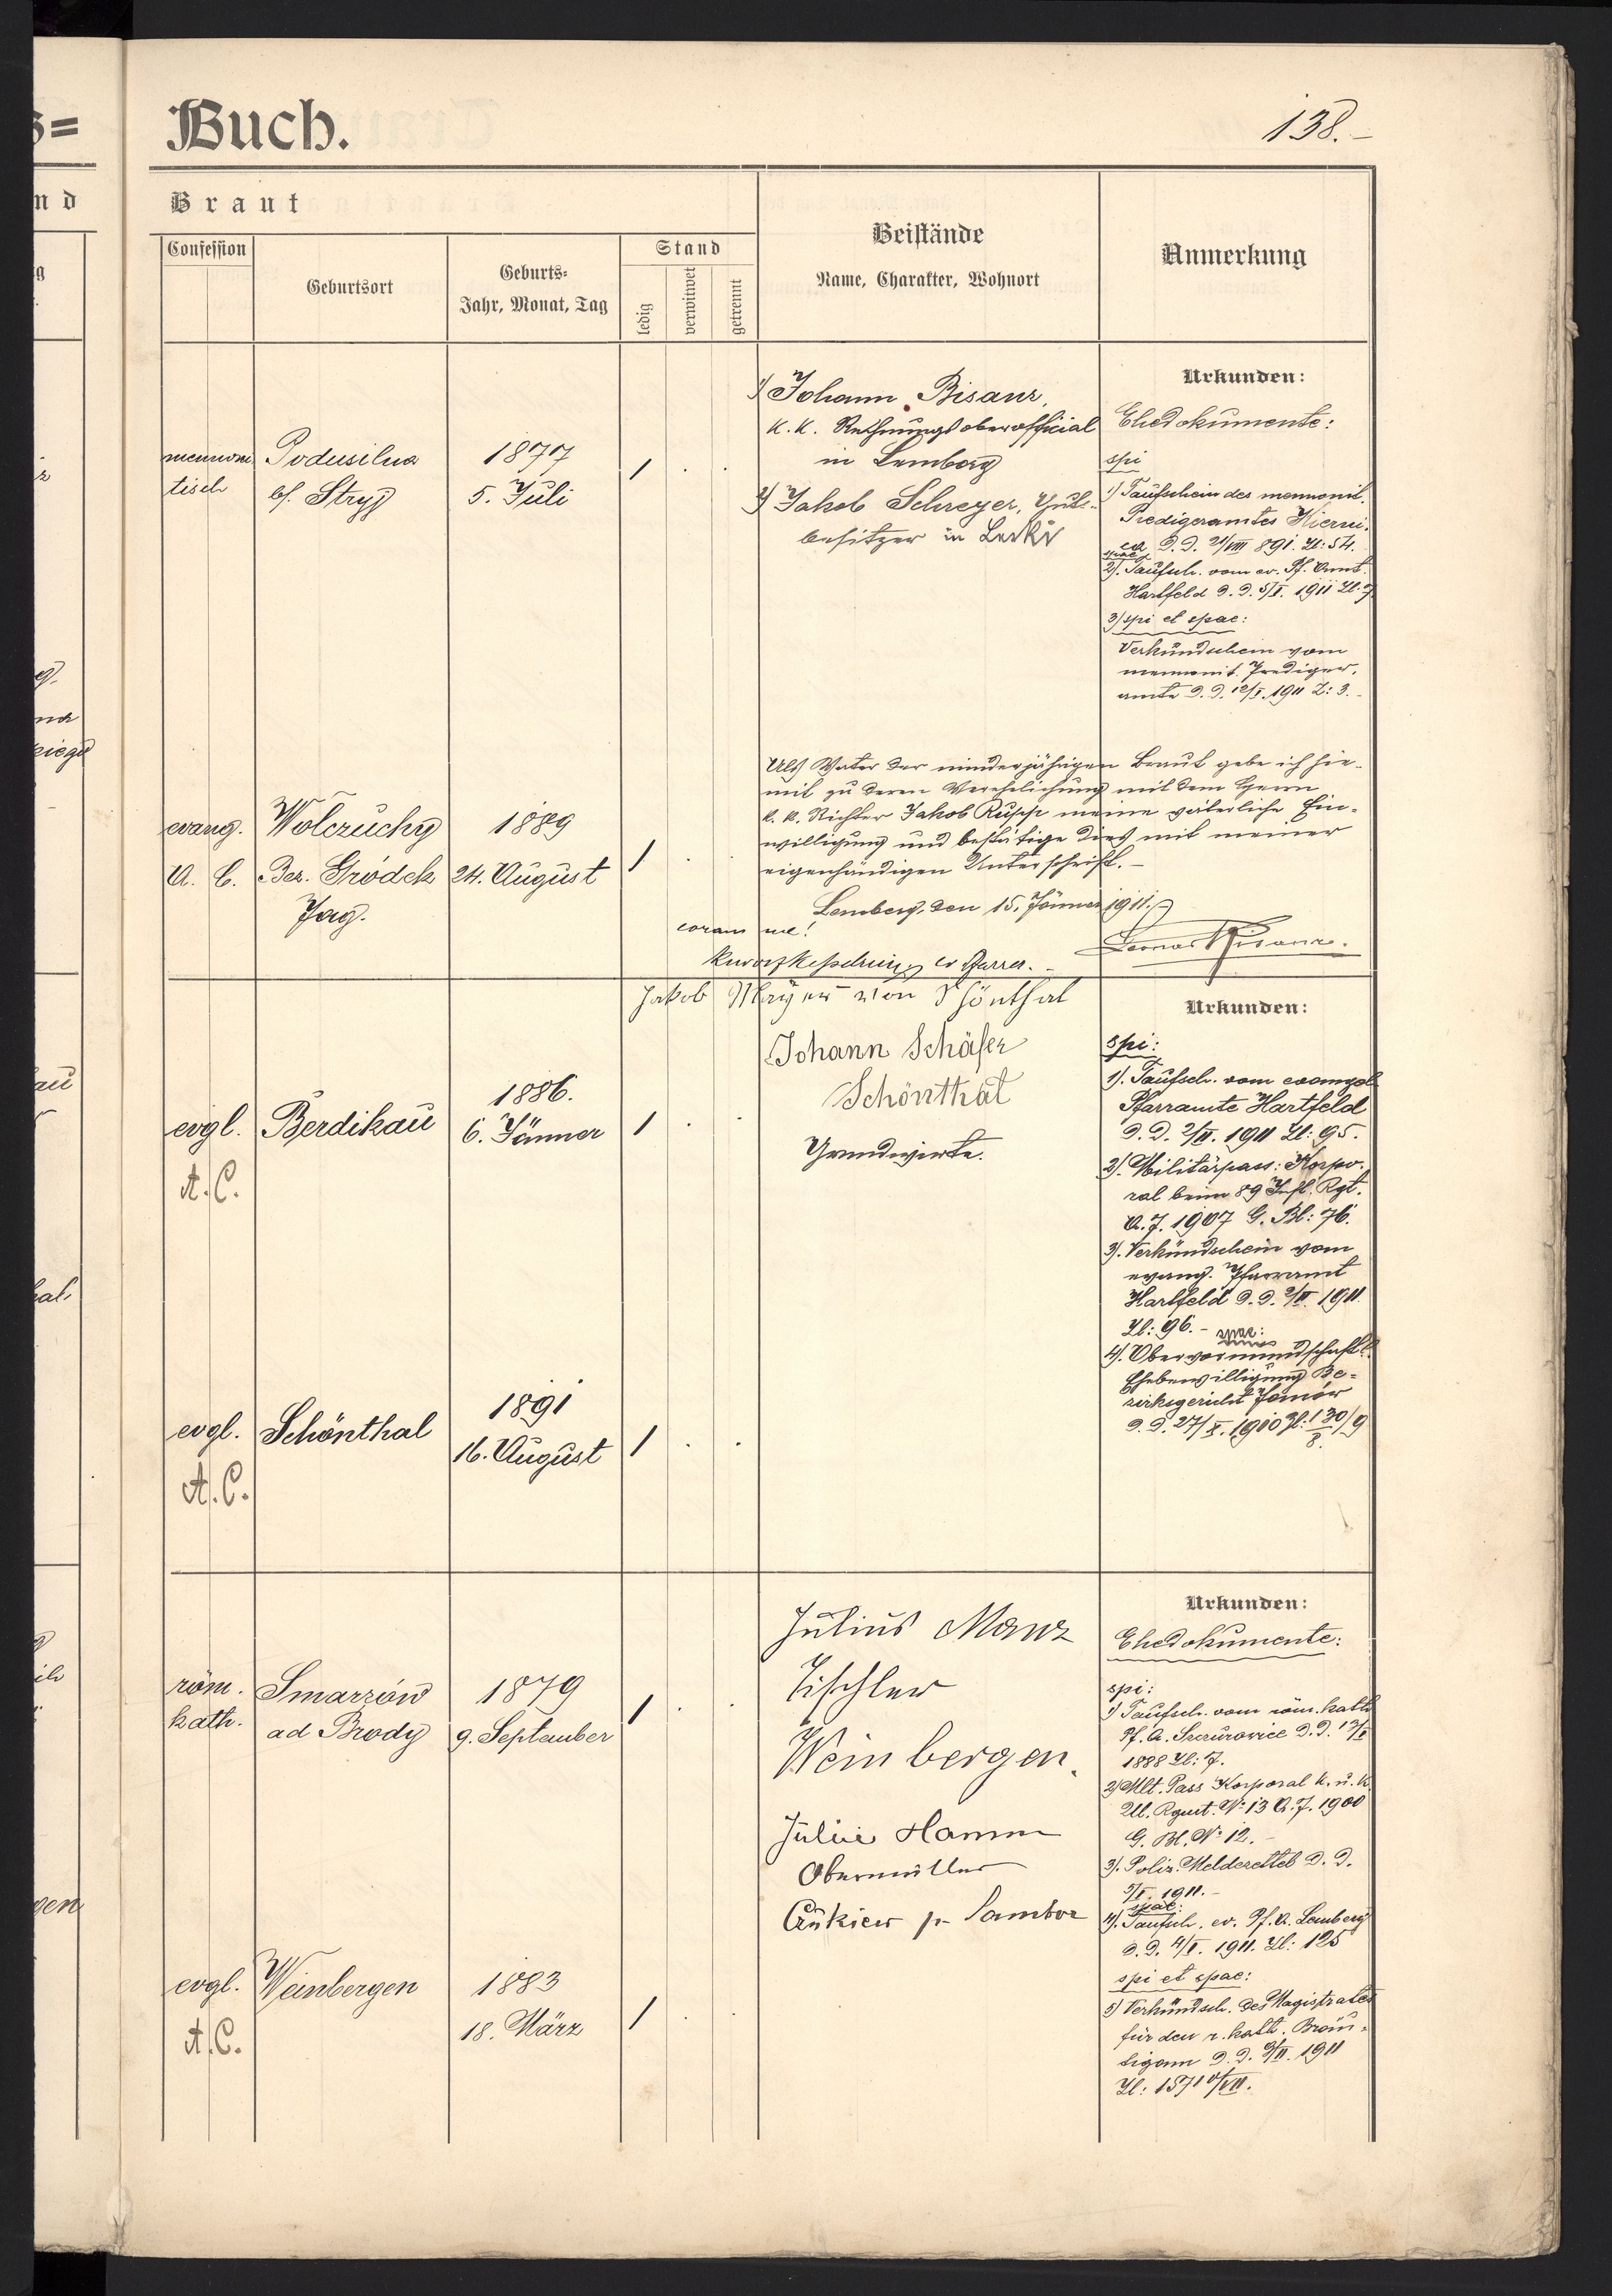 Buch.
138.-
Braut
Confession
Geburtsort
Geburts-
Jahr, Monat, Tag
Stand
ledig
verwitwet
getrennt
Beistände
Name, Charakter, Wohnort
Anmerkung
mennoni
tisch
Podusilna
bf. Stryj
1877
5. Juli
1
1) Johann Bisanz,
k.k. Rechnungsoberofficial
in Lemberg
2) Jakob Schreyer, Guts-
besitzer in
Urkunden:
Ehedokumente:
spi
1) Taufschein des mennonit.
Predigeramtes Kierni-
ca d.d. 21/VIII 891. Zl: 54.
spae
2). Taufsch. vom ev. Pf. Amt.
Hartfeld d.d. 5/I. 1911 Zl. 7
3) spi et spae:
Verkündschein vom
mennonit. Prediger-
amte d.d. 12/I. 1911 Z: 3.-
evang.
A. C.
Wolczuchy
Bez. Gródek
Jag.
1889
24. August
1
Als Vater der minderjährigen Braut gebe ich hie-
mit zu deren Verehelichung mit dem Herrn
k.k. Richter Jakob Rupp meine väterliche Ein-
willigung und bestätige dies mit meiner
eigenhändigen Unterschrift.-
Lemberg, den 15. Jänner 1911.
coram me!
ev Pfarrer.-
Bisanz.
Jakob Mayer von Schönthal
Johann Schäfer
Schönthal
Grundwirte.
evgl.
A.C.
Berdikau
1886.
6. Jänner
1
Urkunden:
spi:
1). Taufsch. vom evangel
Pfarramte Hartfeld
d.d. 2/II. 1911 Zl: 95.
2). Militärpass: Korpo-
ral beim 89 Inft. Rgt.
A.J. 1907 G. Bl: 76.
3). Verkündschein vom
evang. Pfarramt
Hartfeld d.d. 2/II. 1911.
Zl: 96.- spae:
4). Obervormundschaftl.
Ehebewilligung Be-
zirksgericht Janów
d.d. 27/X. 1910 Zl: 130/9
8.
evgl.
A.C.
Schönthal
1891
16. August
1
röm.
kath.
Smarzów
ad Brody
1879
9. September
1
Julius Manz
Tischler
Weinbergen.
Julius Hamm
Obermüller
Czukiew p. Sambor
Urkunden:
Ehedokumente:
spi:
1) Taufsch. vom röm. kath
Pf. A. Szczurowice d.d. 13/I
1888 Zl: 7.
2) Mlt. Pass Korporal k. u. k.
Ul. Rgmt. No 13 A.J. 1900
G. Bl. No 12.-
3). Poliz. Meldezettel d.d.
5/I. 1911.-
spae:
4). Taufsch. ev. Pf. A. Lemberg
d.d. 4/I. 1911. Zl: 125
spi et spae:
5) Verkündsch. des Magistrates
für den r. kath. Bräu-
tigam d.d. 9/II. 1911
Zl: 15710/VII.
evgl.
A.C.
Weinbergen
1883
18. März
1